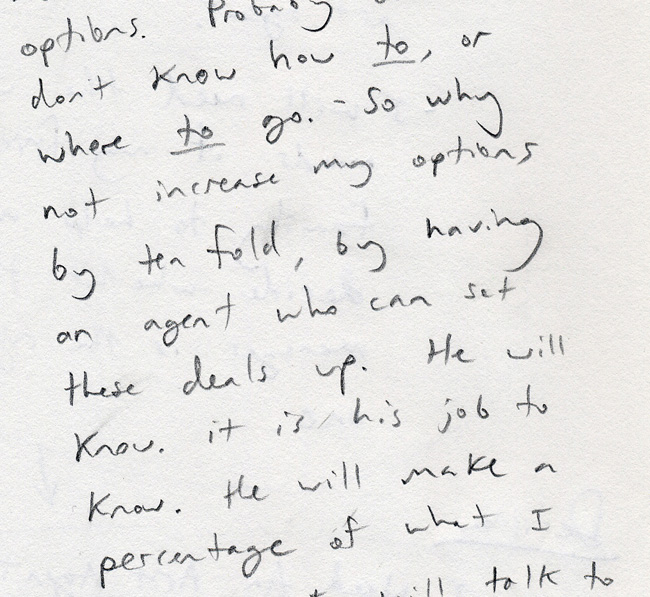 options. Probably
don't know how to, or
where to go. - So why
not increase my options
by ten fold, by having
an agent who can set
these deals up. He will
know. it is his job to
know. He will make a
percentage of what I
will talk to